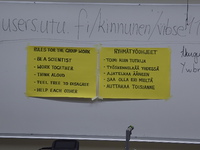 users.utu.fi/kinnunen/vibse
RULES FOR THE GROUP WORK
- BE A SCIENTIST
- WORK TOGETHER
- THINK ALOUD
- FEEL FREE TO DISAGREE
- HELP EACH OTHER
RYHMÄTYÖOHJEET
- TOIMI KUIN TUTKIJA
- TYÖSKENNELKÄÄ YHDESSÄ
- AJATELKAA ÄÄNEEN
- SAA OLLA ERI MIELTÄ
- AUTTAKAA TOISIANNE